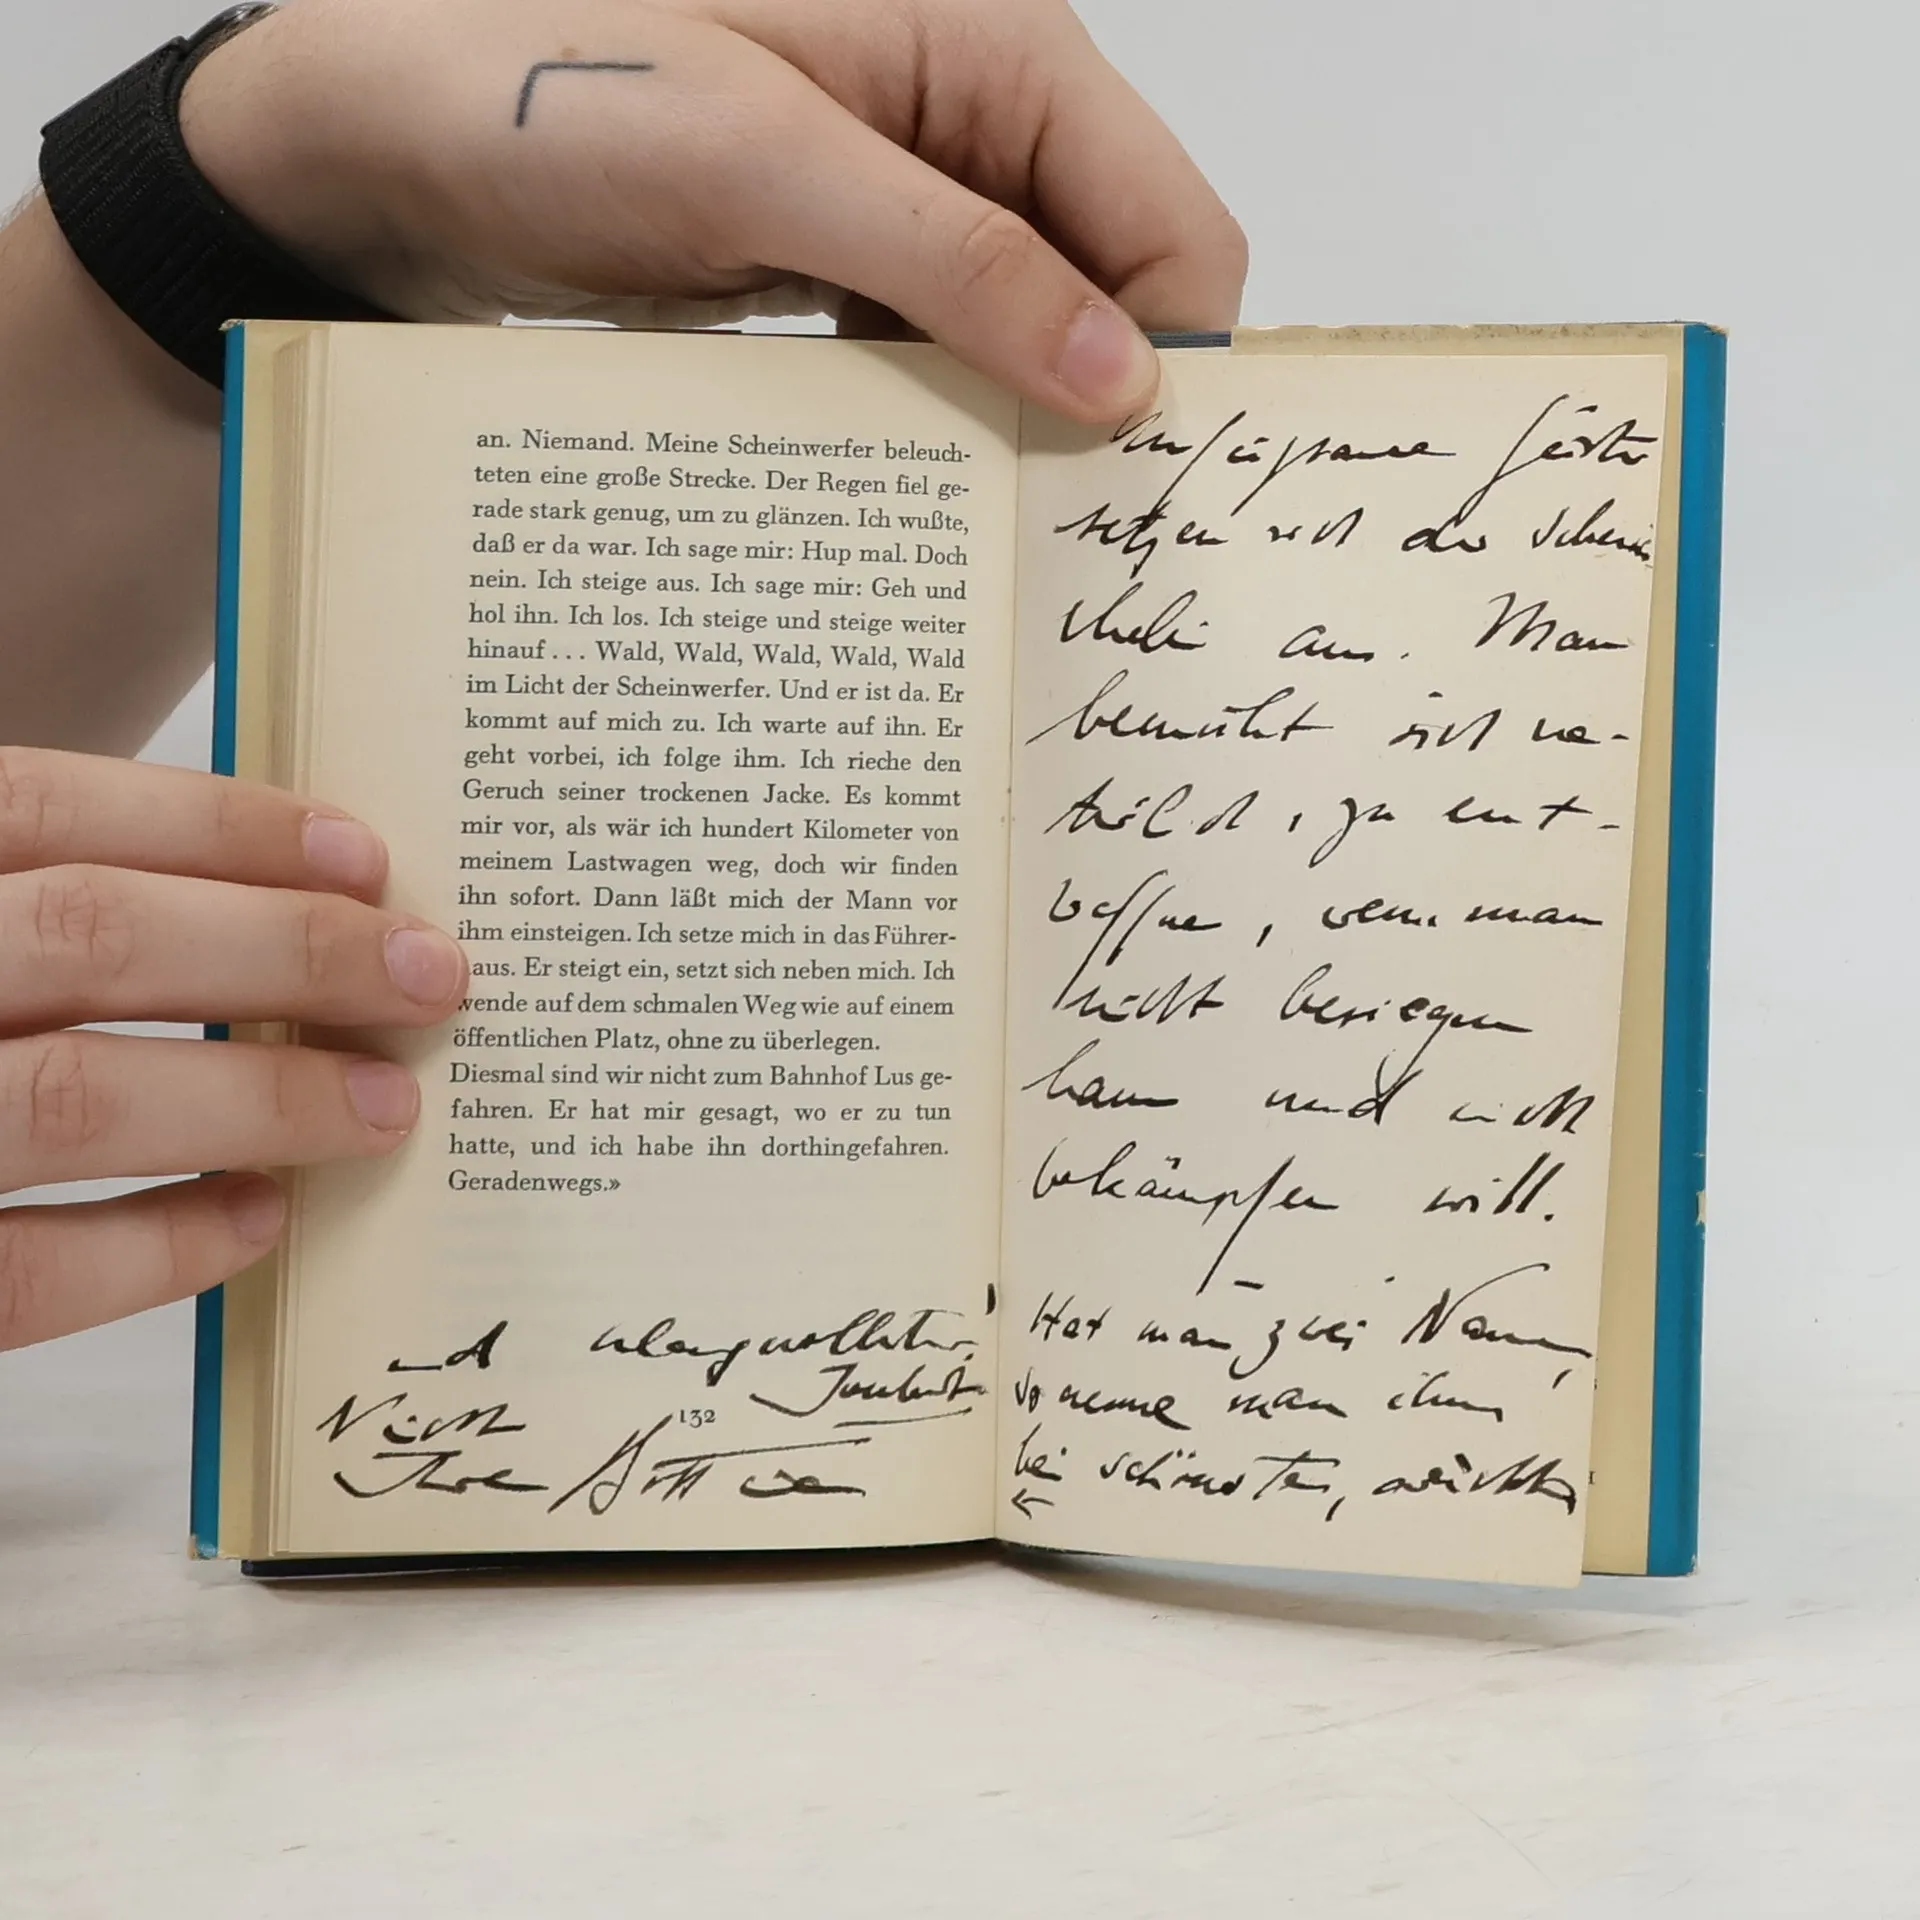 an. Niemand. Meine Scheinwerfer beleuch-
teten eine große Strecke. Der Regen fiel ge-
rade stark genug, um zu glänzen. Ich wußte,
daß er da war. Ich sage mir: Hup mal. Doch
nein. Ich steige aus. Ich sage mir: Geh und
hol ihn. Ich los. Ich steige und steige weiter
hinauf... Wald, Wald, Wald, Wald, Wald
im Licht der Scheinwerfer. Und er ist da. Er
kommt auf mich zu. Ich warte auf ihn. Er
geht vorbei, ich folge ihm. Ich rieche den
Geruch seiner trockenen Jacke. Es kommt
mir vor, als wär ich hundert Kilometer von
meinem Lastwagen weg, doch wir finden
ihn sofort. Dann läßt mich der Mann vor
ihm einsteigen. Ich setze mich in das Führer-
aus. Er steigt ein, setzt sich neben mich. Ich
wende auf dem schmalen Weg wie auf einem
öffentlichen Platz, ohne zu überlegen.
Diesmal sind wir nicht zum Bahnhof Lus ge-
fahren. Er hat mir gesagt, wo er zu tun
hatte, und ich habe ihn dorthingefahren.
Geradenwegs.»
und klangvollsten.
Joubert
Nicht
132
setzen sich der
aus. Man
bemüht sich ve-
zu ent-
waffnen, wenn man
nicht besiegen
kann und nicht
bekämpfen will.
Hat man zwei Namen,
so nenne man ihn
bei schönsten,